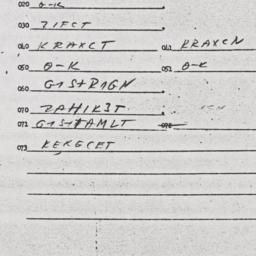 020 O-K
030 ZIFCT
040 KRAXCT 041 KRAXCN
050 O-K 051 O-K
060 G1StR1GN
070 ZAHIK3T
071 G1StAMLT 072
073 KERGCFT